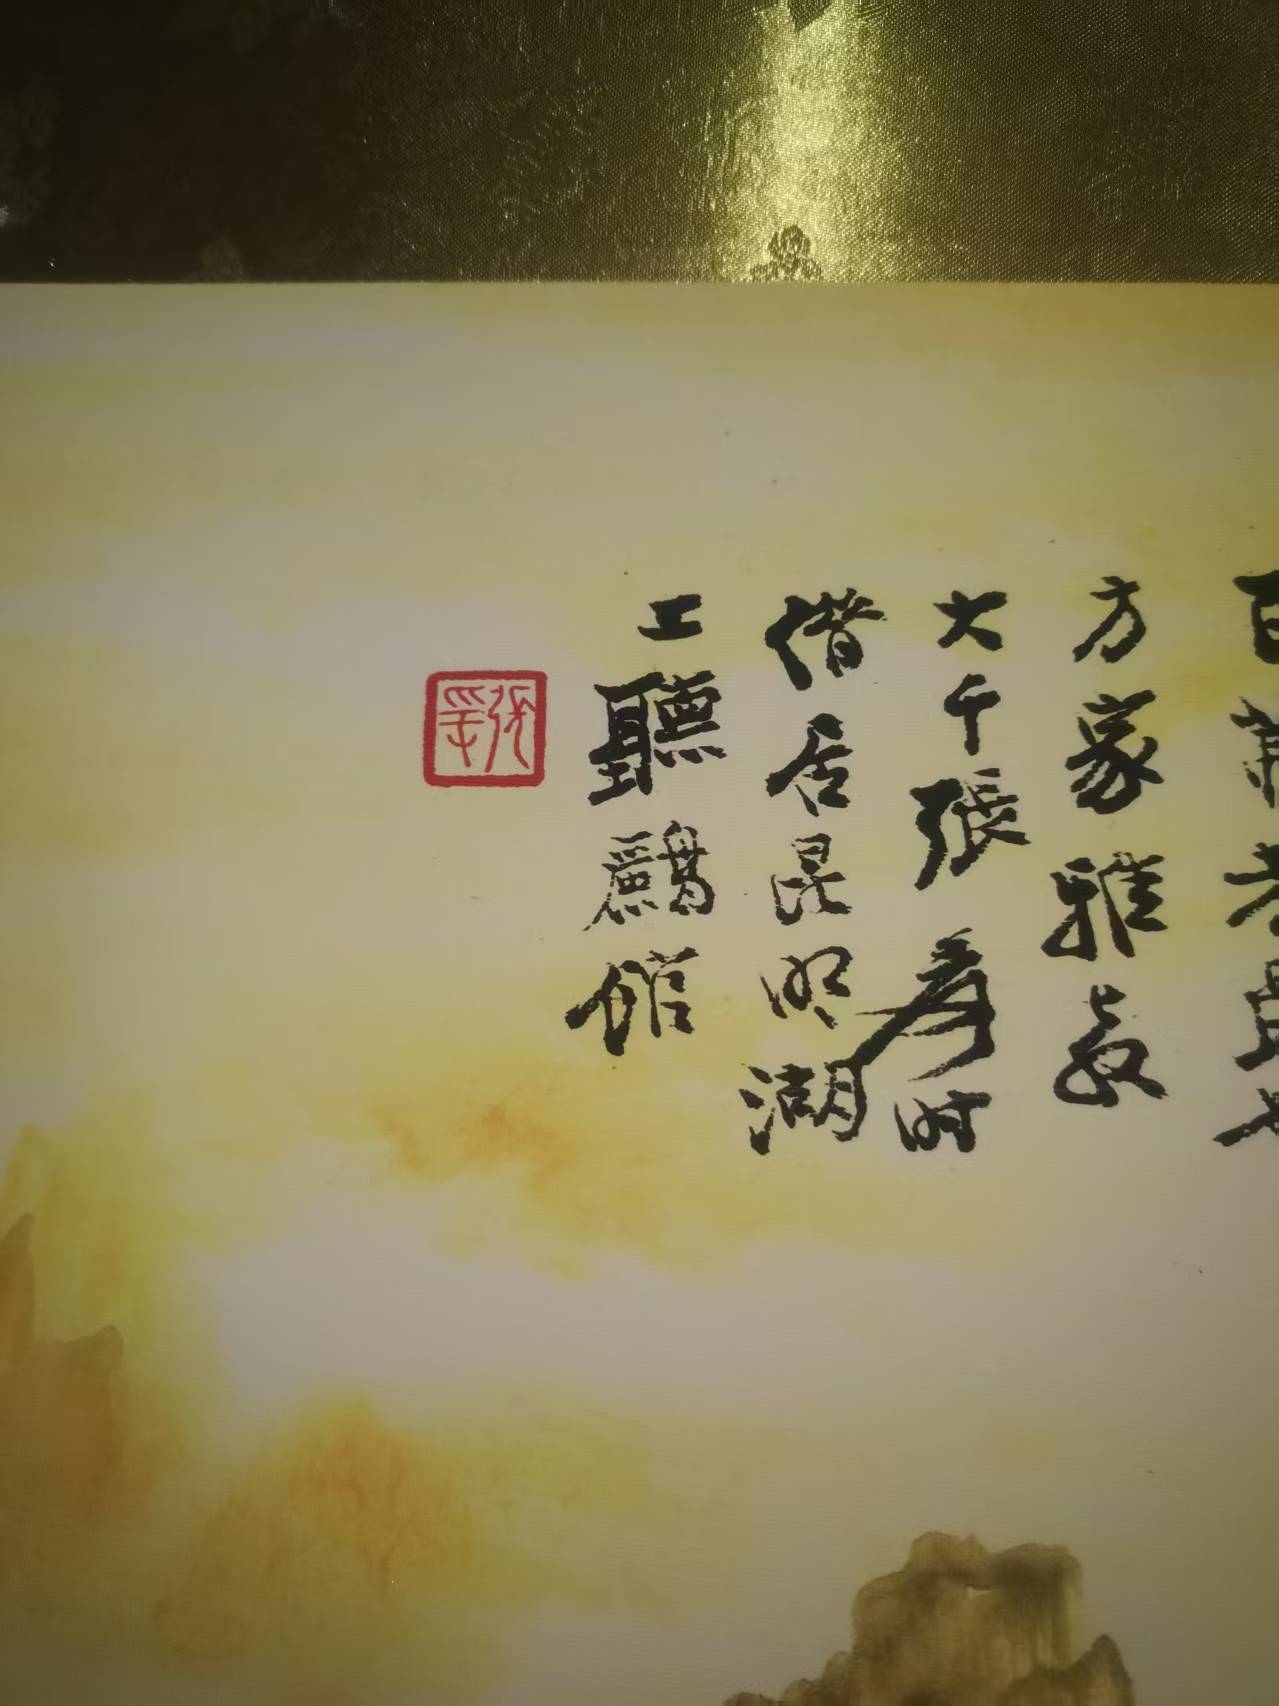 方家雅教
大千張爰时
借居昆明湖
上聽鸝館
張爰